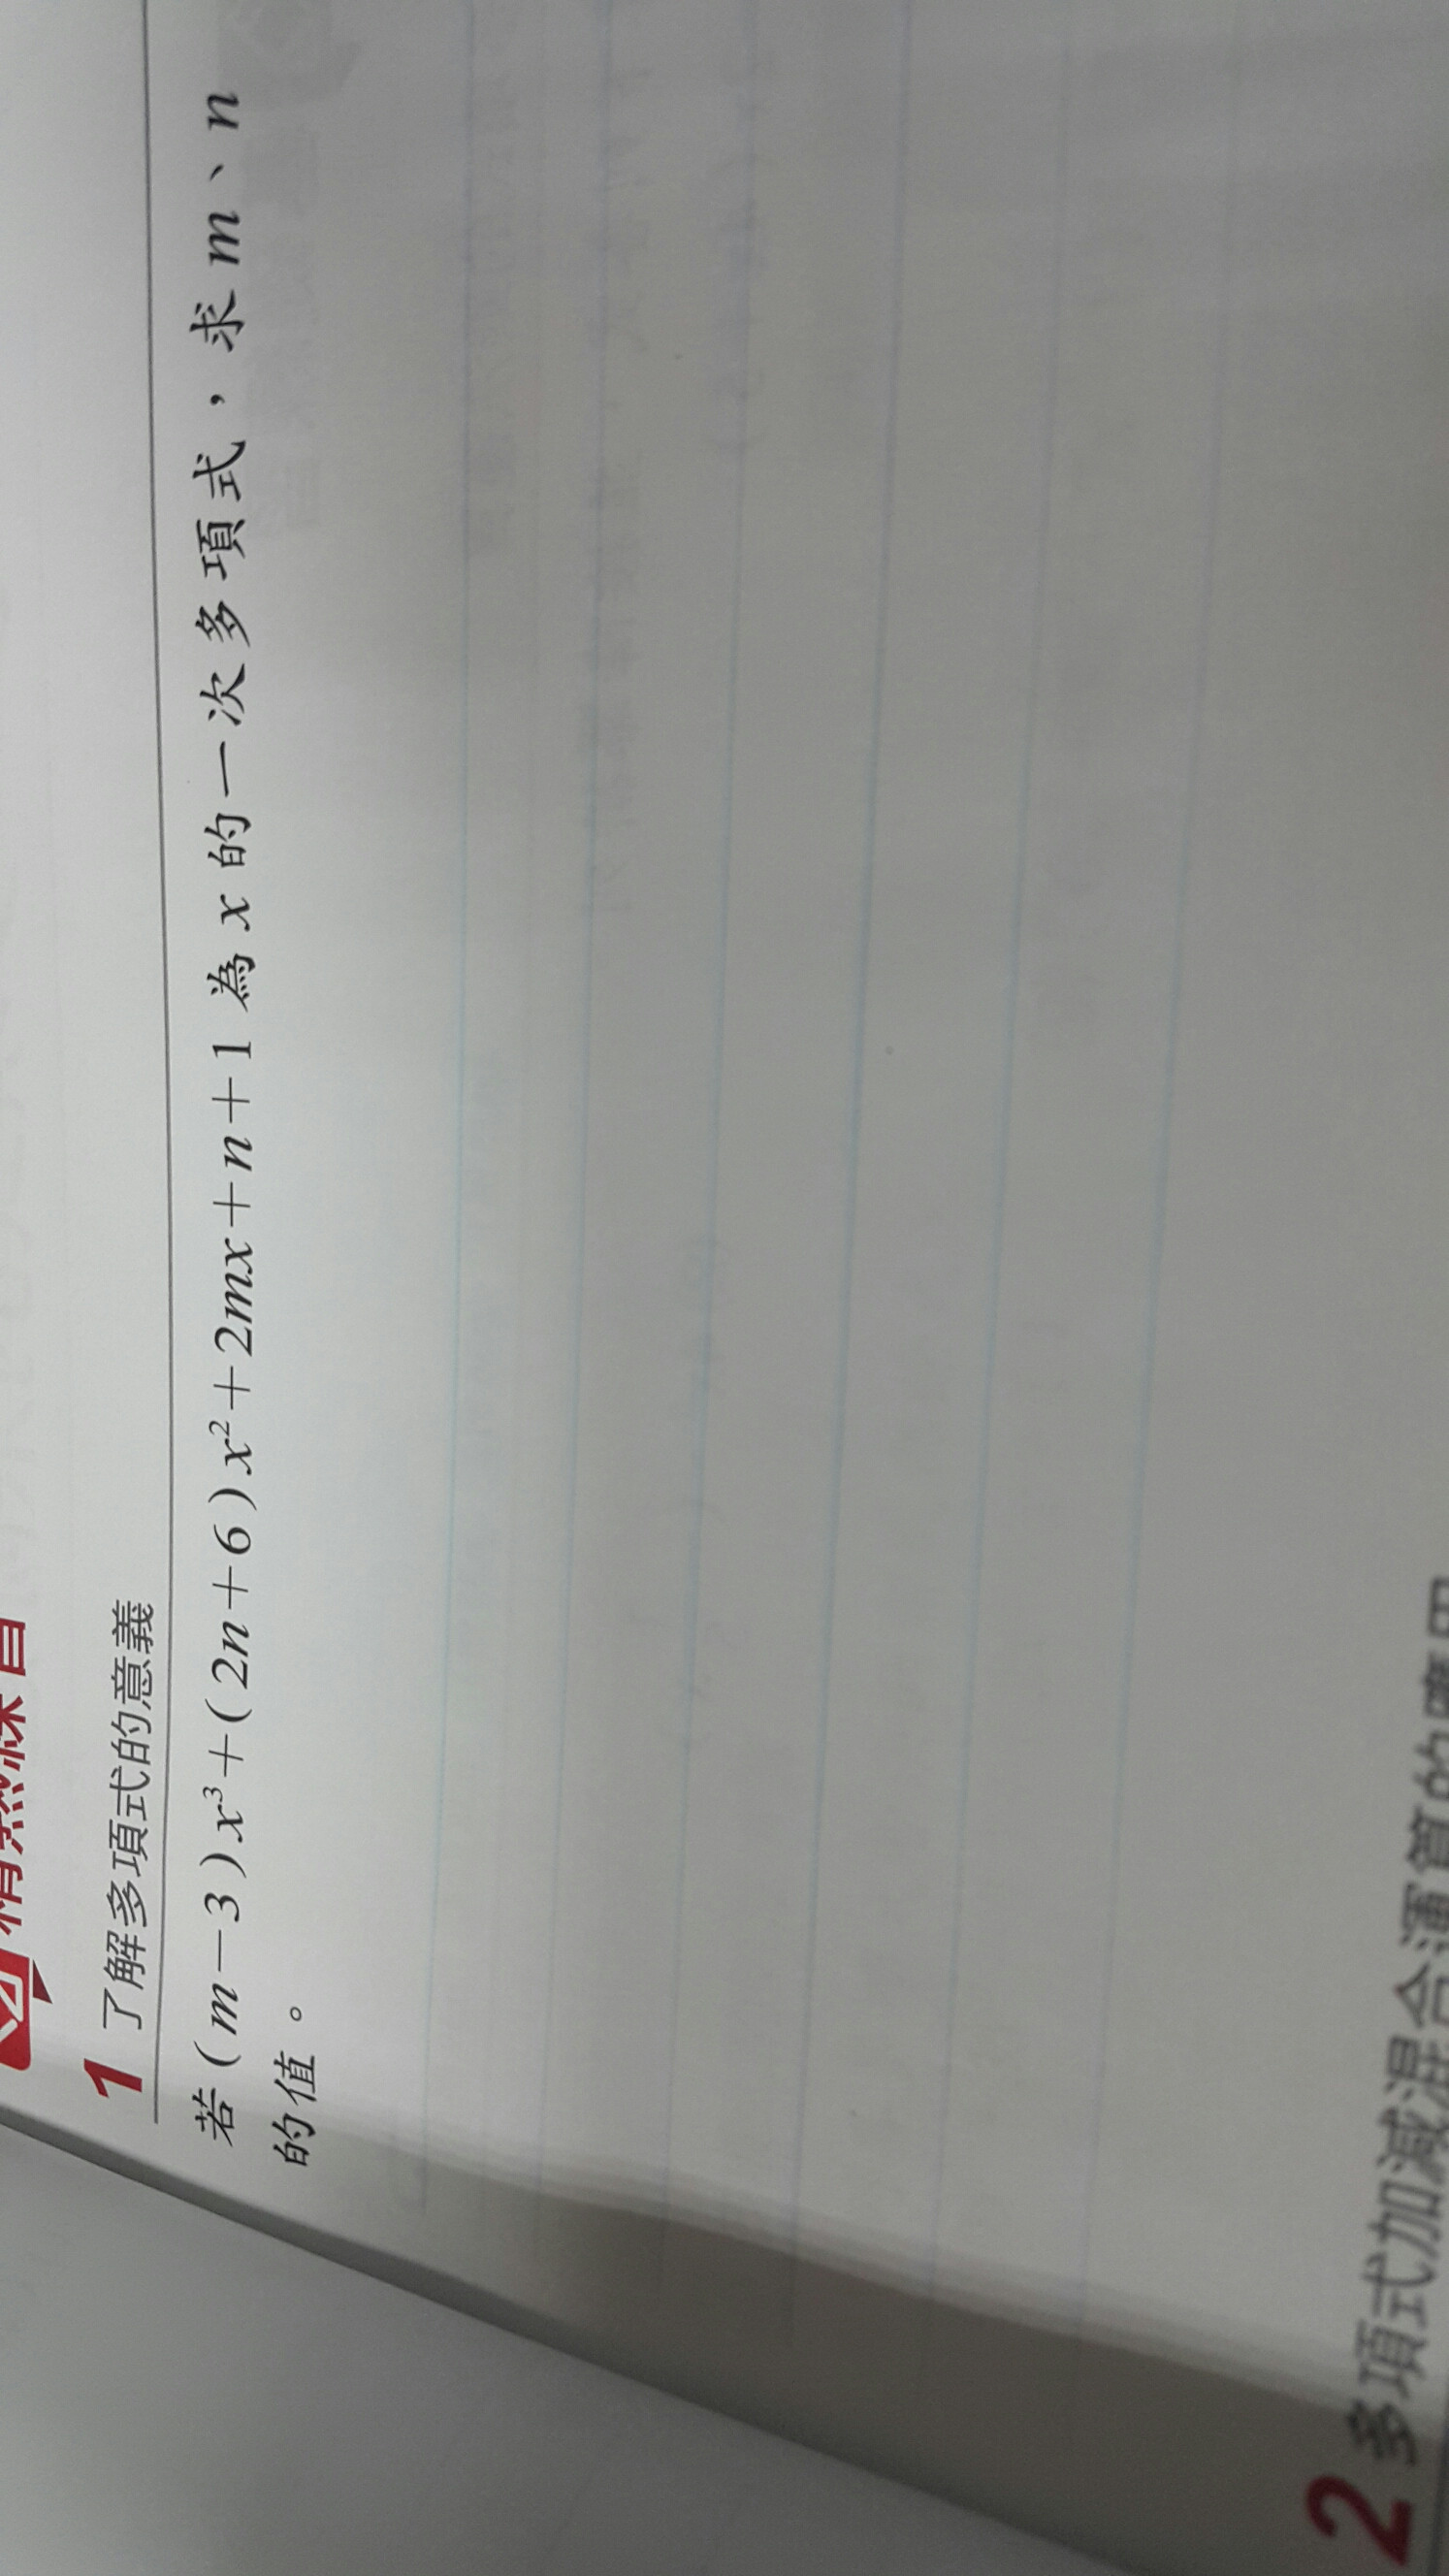 精熟練習
1 了解多項式的意義
若(m－3)x³＋(2n＋6)x²＋2mx＋n＋1為x的一次多項式，求m、n
的值。
2 多項式加減混合運算的應用